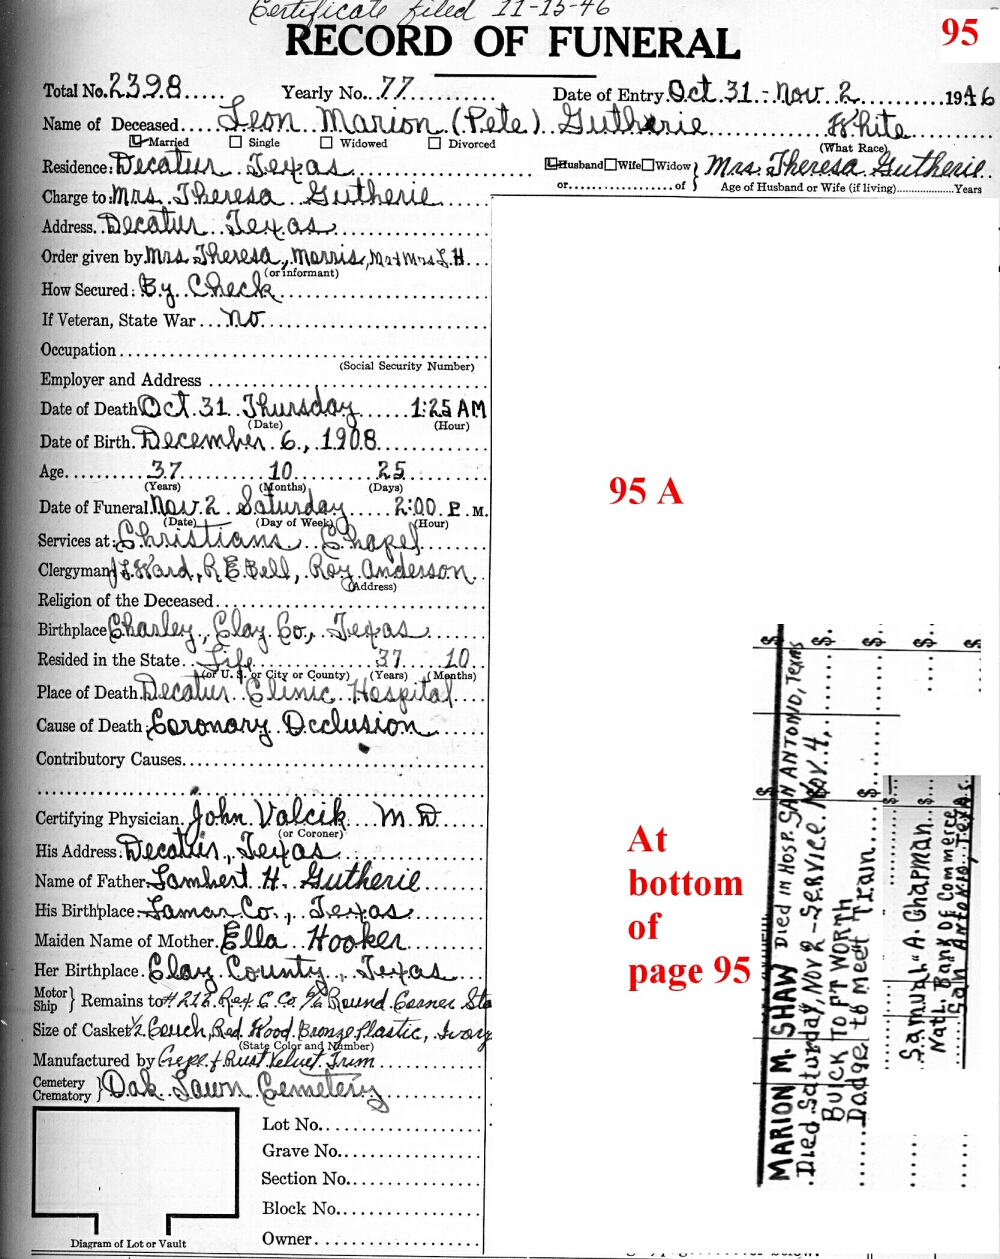 Certificate filed 11-13-46
RECORD OF FUNERAL
95
Total No. 2398 Yearly No. 77 Date of Entry Oct 31 - Nov 2 1946
Name of Deceased Leon Marion (Pete) Gutherie White
Married Single Widowed Divorced (What Race)
Residence: Decatur Texas Husband Wife Widow } Mrs. Theresa Gutherie
or of Age of Husband or Wife (if living) Years
Charge to: Mrs. Theresa Gutherie
Address. Decatur Texas
Order given by Mrs. Theresa, Morris, Mr & Mrs L.H.
(or informant)
How Secured: By Check
If Veteran, State War no
Occupation
(Social Security Number)
Employer and Address
Date of Death Oct 31 Thursday 1:25 AM
(Date) (Hour)
Date of Birth. December 6, 1908
Age 37 10 25
(Years) (Months) (Days)
Date of Funeral Nov. 2 Saturday 2:00 P. M.
(Date) (Day of Week) (Hour)
Services at: Christians Chapel
Clergyman J L Ward, R E Bell, Roy Anderson
(Address)
Religion of the Deceased
Birthplace Charley, Clay Co., Texas
Resided in the State Life 37 10
(or U. S. or City or County) (Years) (Months)
Place of Death Decatur Clinic Hospital
Cause of Death Coronary Occlusion
Contributory Causes
Certifying Physician. John Valcik M D
(or Coroner)
His Address: Decatur, Texas
Name of Father Lambert H. Gutherie
His Birthplace Lamar Co., Texas
Maiden Name of Mother. Ella Hooker
Her Birthplace Clay County, Texas
Motor
Ship } Remains to # 212 Rex C. Co. Round Corner Sta
Size of Casket ½ Couch, Red Wood Bronze Plastic, Ivory
(State Color and Number)
Manufactured by Crepe & Rust Velvet Trim
Cemetery
Crematory } Oak Lawn Cemetery
Lot No.
Grave No.
Section No.
Block No.
Owner
Diagram of Lot or Vault
95 A
At
bottom
of
page 95
MARION M. SHAW DIED IN HOSP. SAN ANTONIO, TEXAS
Died Saturday, NOV 2 - SERVICE NOV 4,
BUICK TO FT WORTH
Dodge to meet Train
Samual "A. Chapman
Natl. Bank Of Commerce
San Antonio, Texas